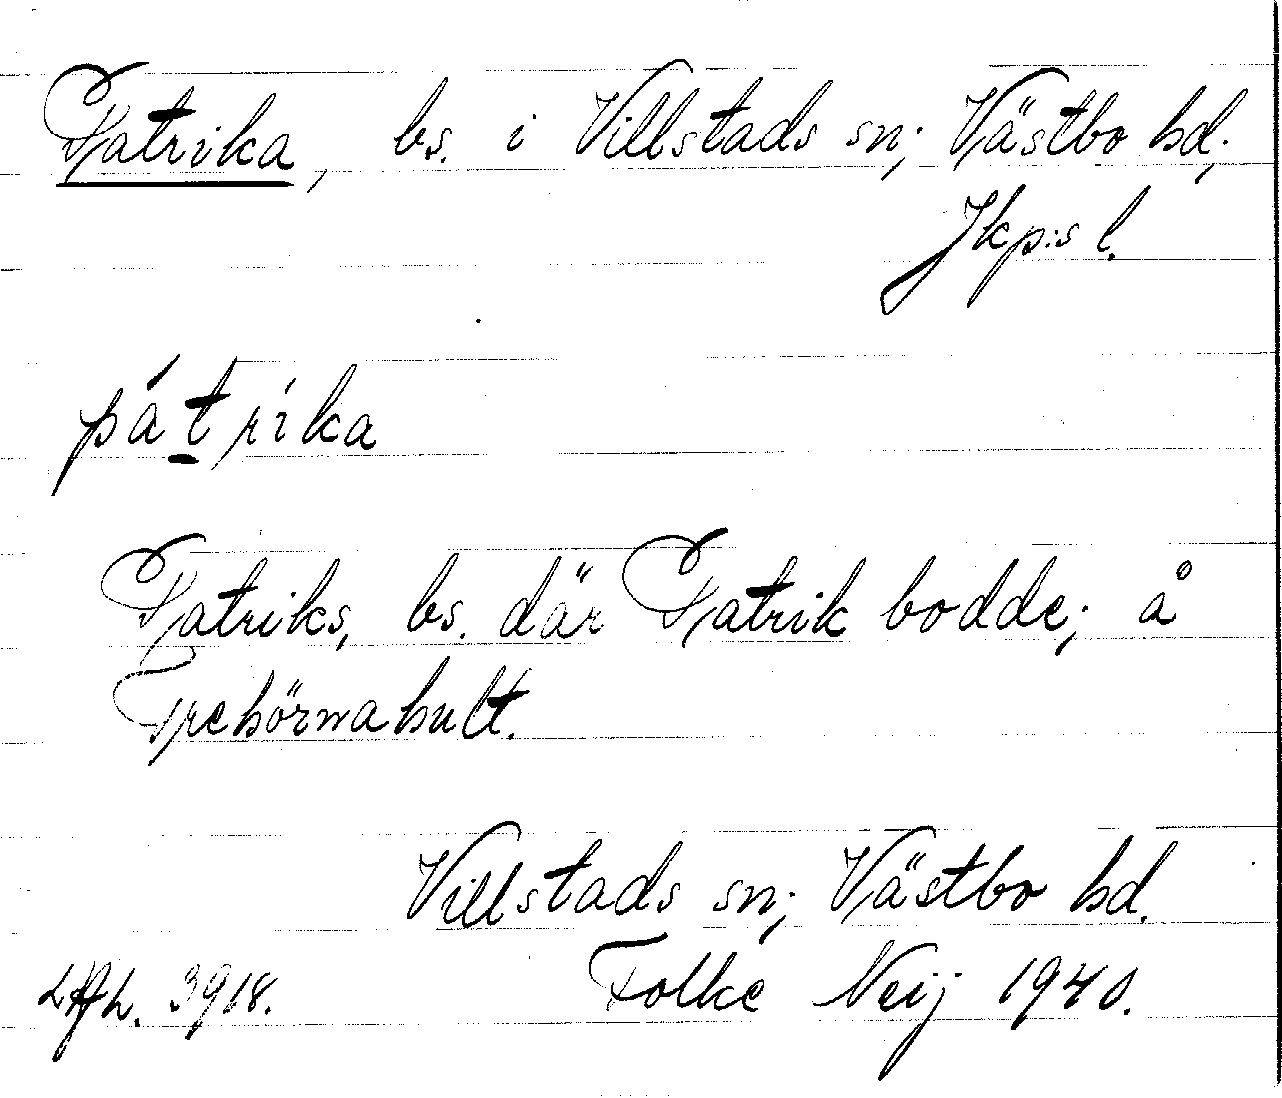 Patrika, bs. i Villstads sn; Västbo hd;
Jkp:s l.
pátrìka
Patriks, bs. där Patrik bodde; å
Trehörnahult.
Villstads sn; Västbo hd.
3918. Folke Neij 1940.